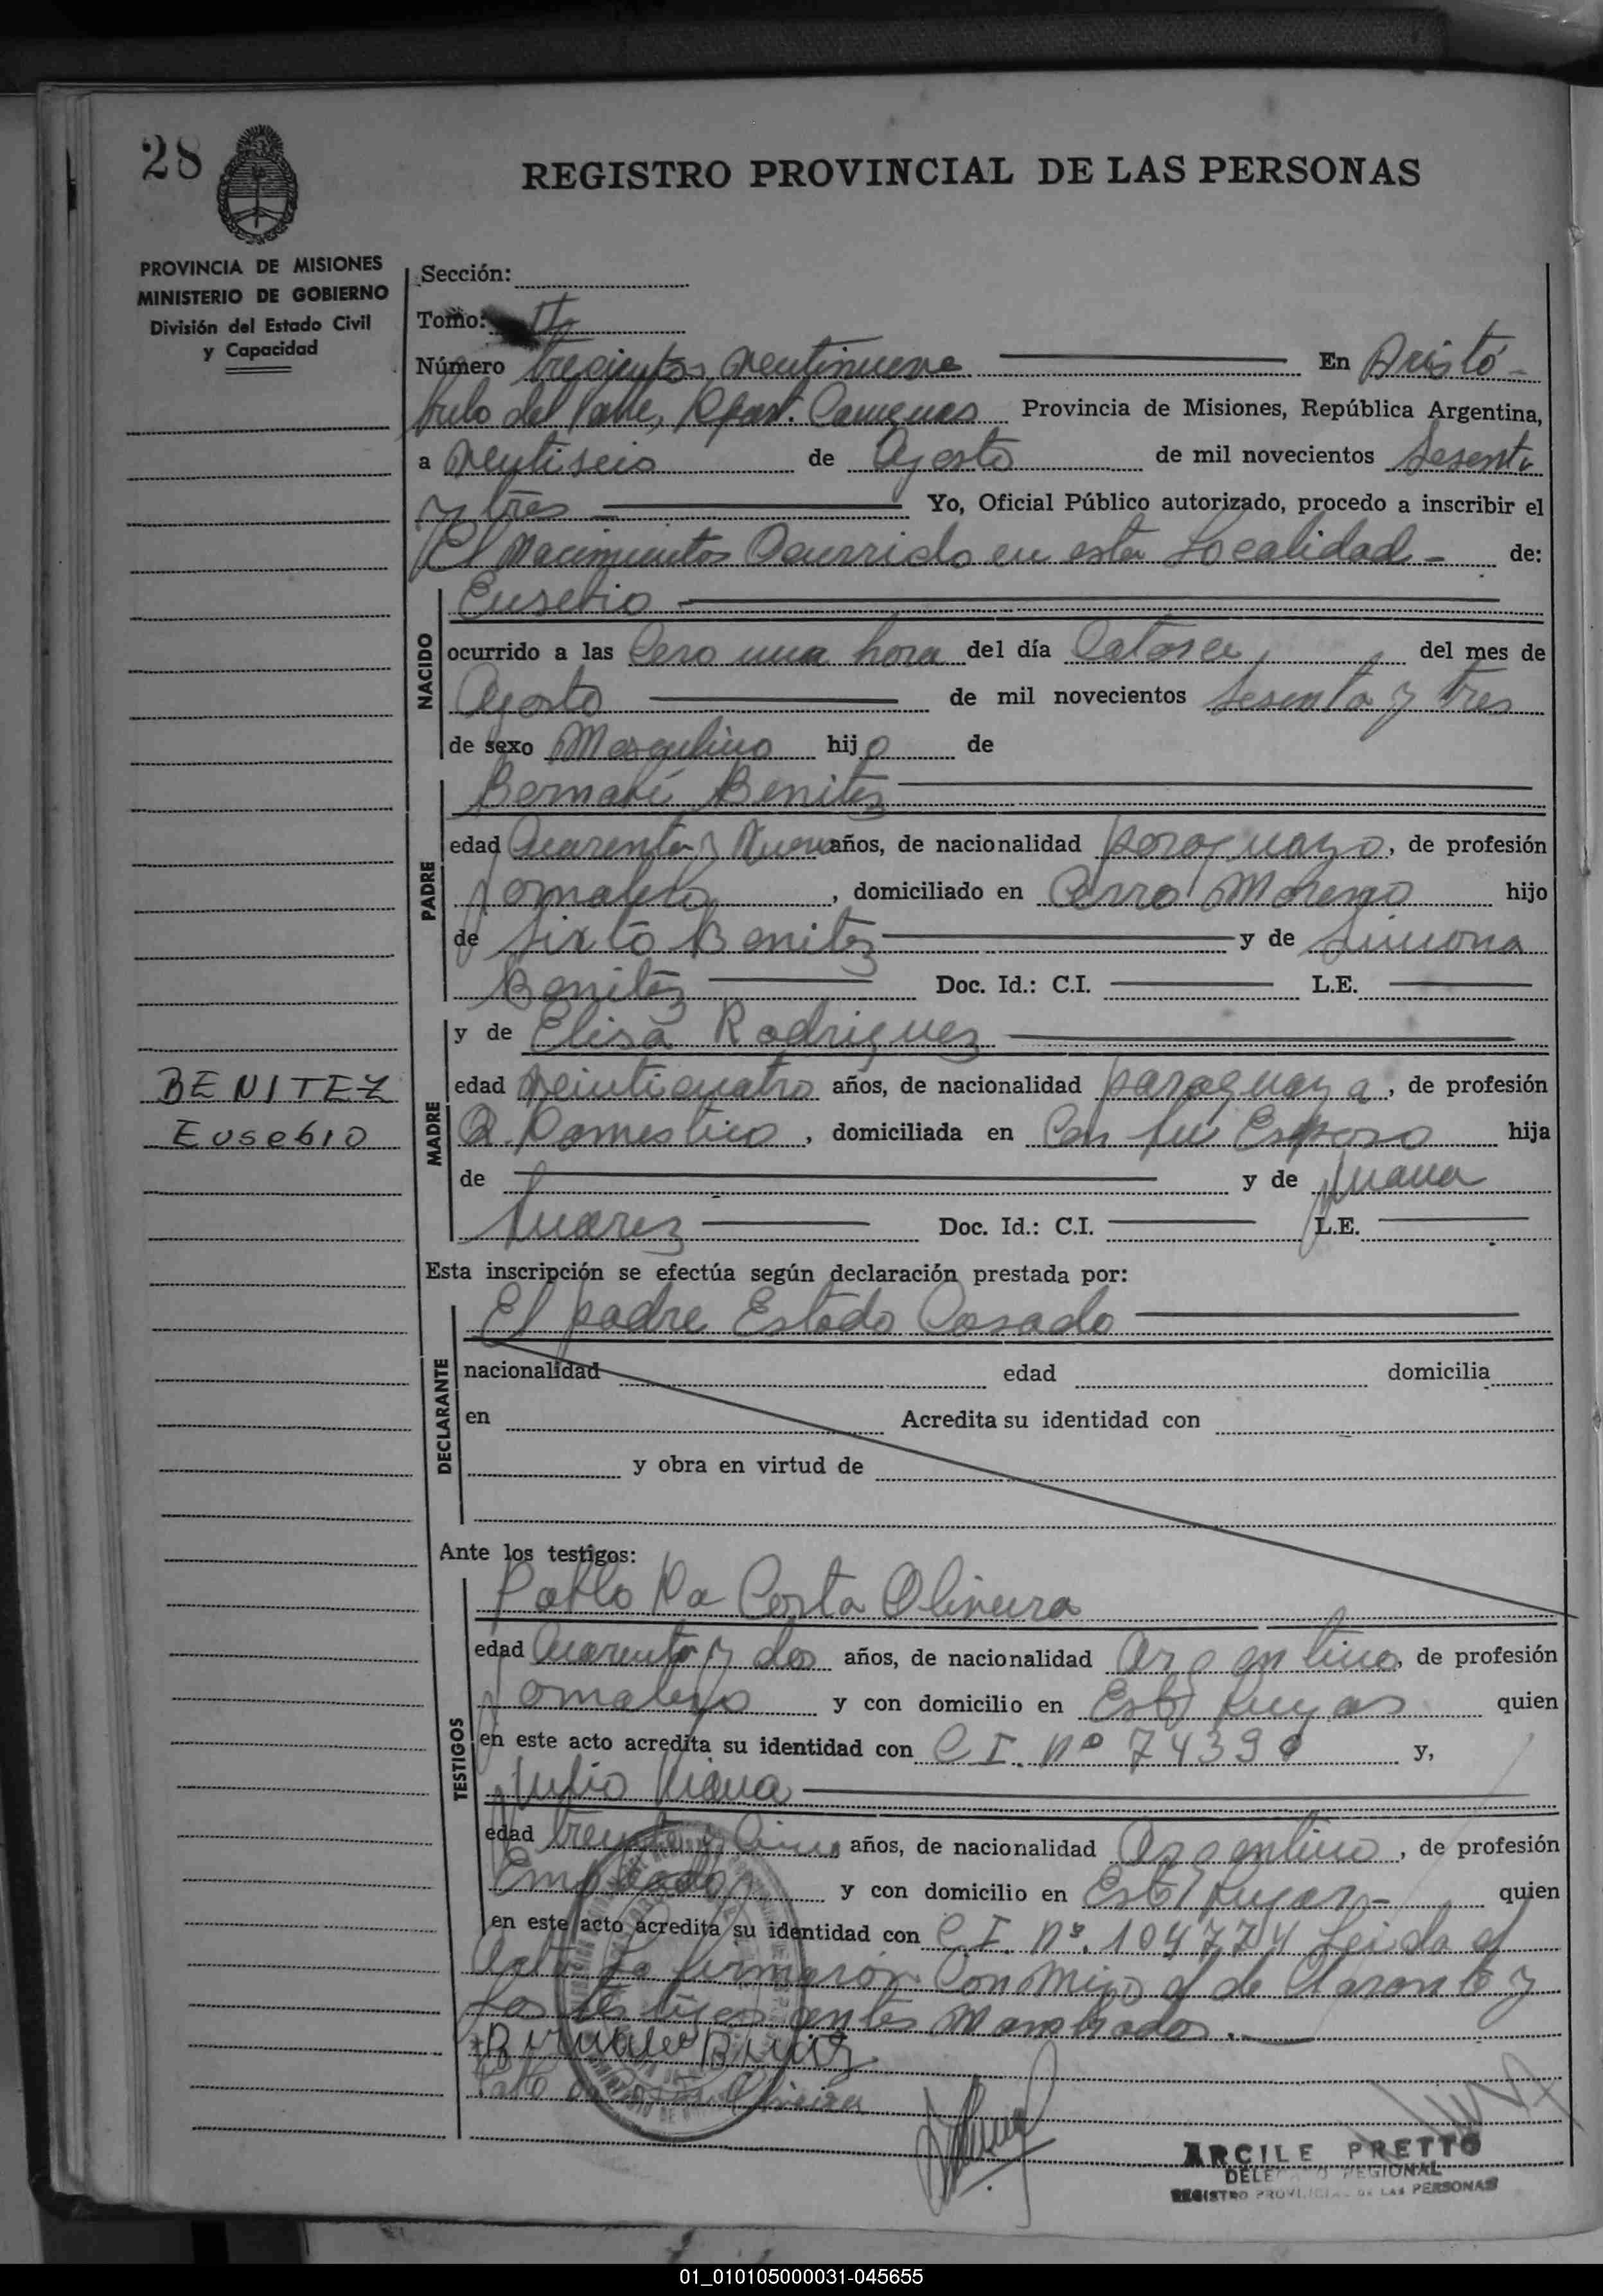 28
REGISTRO PROVINCIAL DE LAS PERSONAS
PROVINCIA DE MISIONES
MINISTERIO DE GOBIERNO
División del Estado Civil
y Capacidad
Sección:
Tomo: II
Número trecientos veutinueve En Aristó-
bulo del Valle, Dpart. Cainguas Provincia de Misiones, República Argentina,
a veytiseis de Agosto de mil novecientos sesenta
y tres Yo, Oficial Público autorizado, procedo a inscribir el
El Nacimiento Ocurrido en esta Localidad - de:
Eusebio
NACIDO
ocurrido a las Cero una hora del día Catorce del mes de
Agosto de mil novecientos sesenta y tres
de sexo Masculino hijo de
Bernabé Benitez
PADRE
edad Cuarenta y Nueve años, de nacionalidad paraguayo, de profesión
Jornalero, domiciliado en Cerro Moreno hijo
de Sixto Benitez y de Simona
Benitez Doc. Id.: C.I. L.E.
y de Elisa Rodriguez
MADRE
edad veinticuatro años, de nacionalidad paraguaya, de profesión
Q. Domestico, domiciliada en Con su Esposo hija
de y de Juana
Suarez Doc. Id.: C.I. L.E.
BENITEZ
Eusebio
Esta inscripción se efectúa según declaración prestada por:
El padre Estado Casado
DECLARANTE
nacionalidad edad domicilia
en Acredita su identidad con
y obra en virtud de
Ante los testigos:
Pablo Da Costa Oliveira
TESTIGOS
edad Cuarenta y dos años, de nacionalidad Argentino, de profesión
Jornalero y con domicilio en Este Lugar quien
en este acto acredita su identidad con C I. Nº 7439 y,
Julio
edad treynta y Cinco años, de nacionalidad Argentino, de profesión
Empleado y con domicilio en Este Lugar - quien
en este acto acredita su identidad con C.I. Nº. 104774 Leida el
Acta la firmaron Conmigo el de Claronte y
los testigos antes Monbrados.
Oliveira
ARCILE PRETTO
DELEGADO REGIONAL
REGISTRO PROVINCIAL DE LAS PERSONAS
01_010105000031-045655